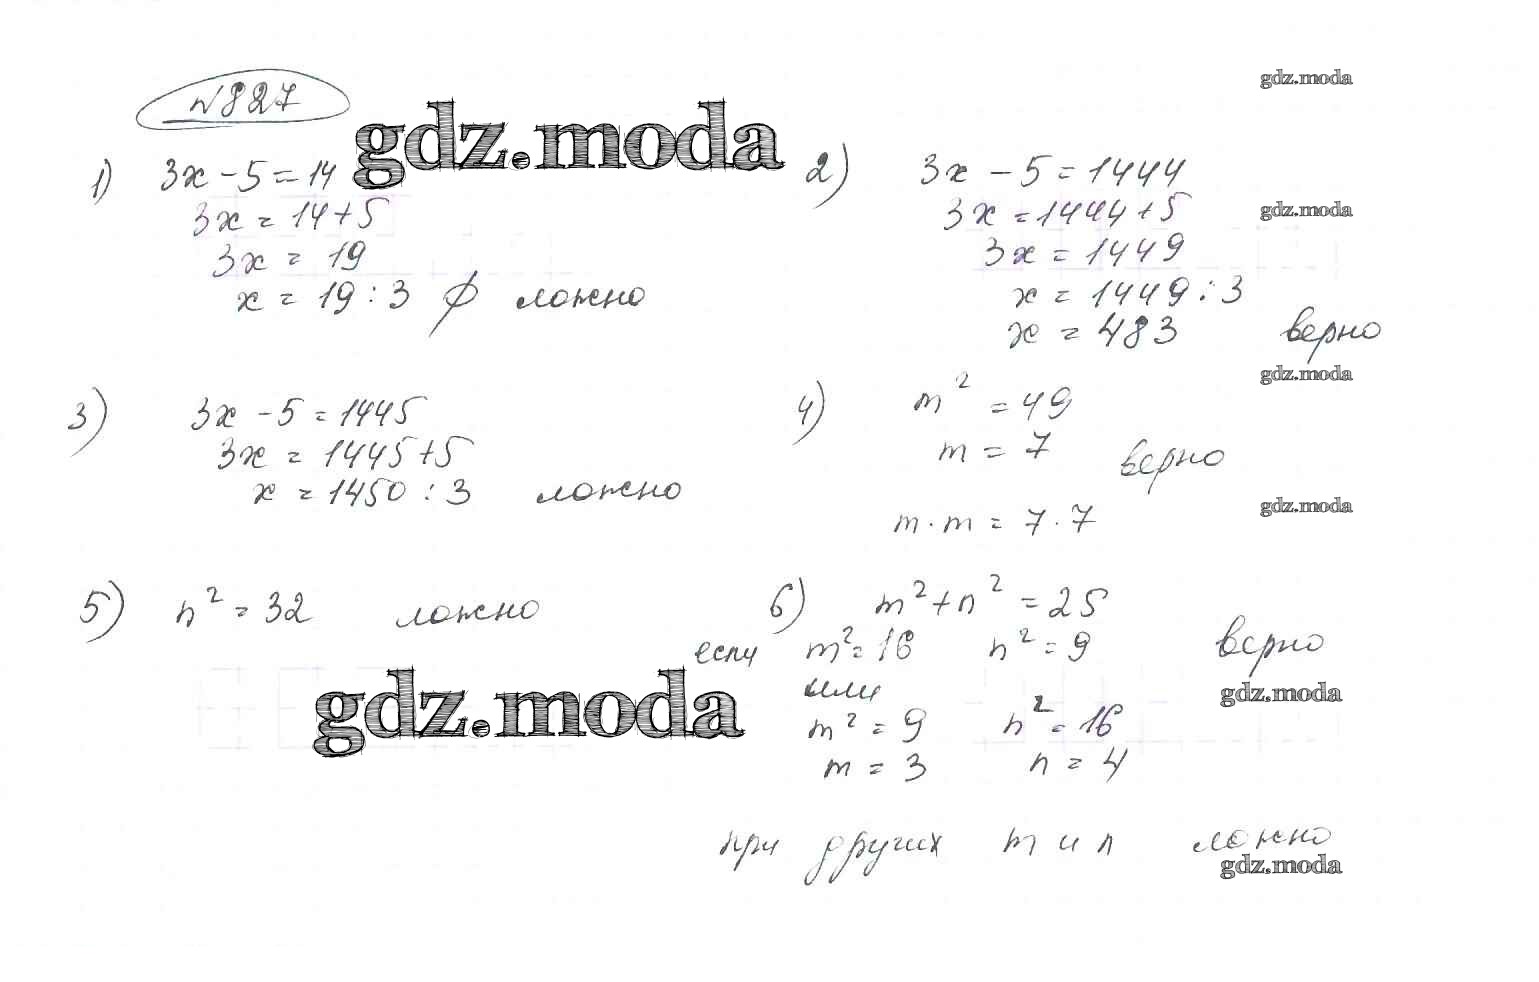 №827
gdz.moda
gdz.moda
1) 3x - 5 = 14
3x = 14 + 5
3x = 19
x = 19 : 3 ∅ ложно
2) 3x - 5 = 1444
3x = 1444 + 5
gdz.moda
3x = 1449
x = 1449 : 3
x = 483 верно
gdz.moda
3) 3x - 5 = 1445
3x = 1445 + 5
x = 1450 : 3 ложно
4) m² = 49
m = 7 верно
m · m = 7 · 7
gdz.moda
5) n² = 32 ложно
gdz.moda
6) m² + n² = 25
если m² = 16 n² = 9 верно
или
gdz.moda
m² = 9 n² = 16
m = 3 n = 4
при других m и n ложно
gdz.moda